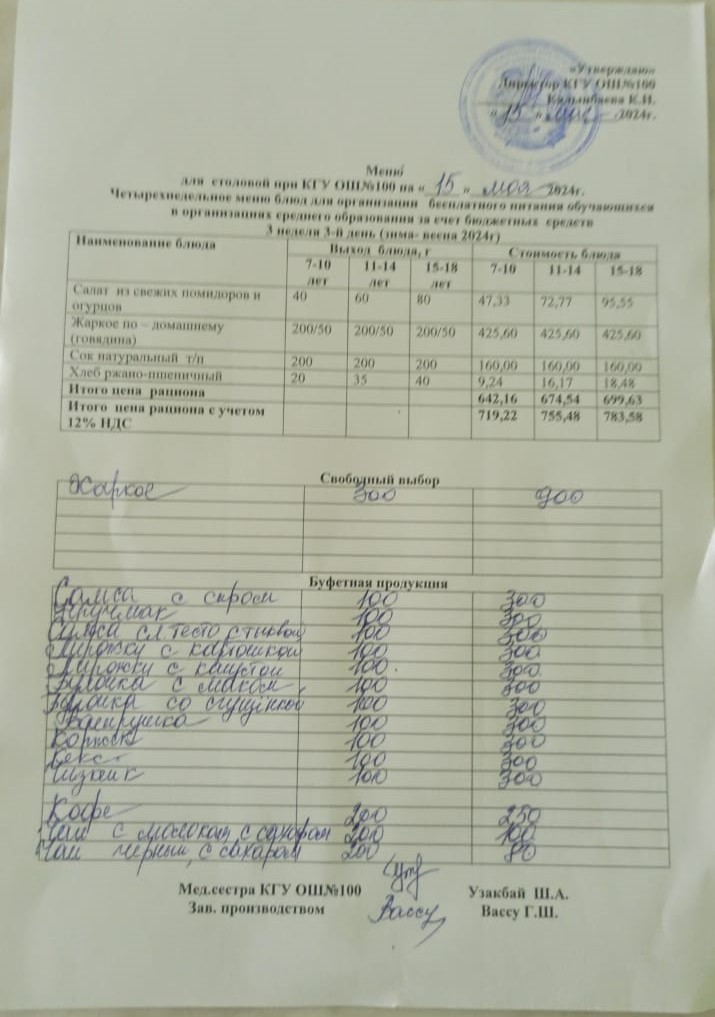 «Утверждаю»
Директор КГУ ОШ№100
К.И.
« 15 » 2024г.
Меню
для столовой при КГУ ОШ№100 на « 15 » мая 2024г.
Четырехнедельное меню блюд для организации бесплатного питания обучающихся
в организациях среднего образования за счет бюджетных средств
3 неделя 3-й день (зима- весна 2024г)
Наименование блюда Выход блюда, г Стоимость блюда
7-10 лет 11-14 лет 15-18 лет 7-10 11-14 15-18
Салат из свежих помидоров и огурцов 40 60 80 47,33 72,77 95,55
Жаркое по – домашнему (говядина) 200/50 200/50 200/50 425,60 425,60 425,60
Сок натуральный т/п 200 200 200 160,00 160,00 160,00
Хлеб ржано-пшеничный 20 35 40 9,24 16,17 18,48
Итого цена рациона 642,16 674,54 699,63
Итого цена рациона с учетом 12% НДС 719,22 755,48 783,58
Свободный выбор
Жаркое 300 900
Буфетная продукция
Самса с сыром 100 300
100 300
тесто 100 300
Пирожки с картошкой 100 300
Пирожки с капустой 100 300
Булочка с маком 100 300
Булочка со сгущенкой 100 300
Ватрушка 100 300
100 300
Кекс 100 300
Чизкейк 100 300
Кофе 200 250
Чай с молоком, с сахаром 200 100
Чай черный, с сахаром 200 80
Мед.сестра КГУ ОШ№100 Узакбай Ш.А.
Зав. производством Вассу Вассу Г.Ш.